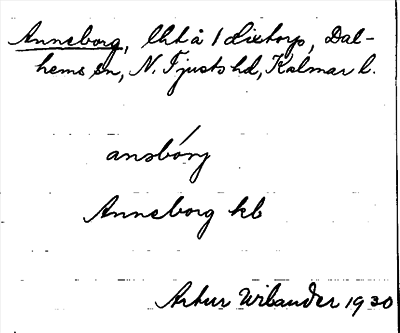 Anneborg, lht å 1 Lixtorp, Dal-
hems sn, N. Tjusts hd, Kalmar l.
ansbórj
Anneborg kb
Artur Wilander 1930